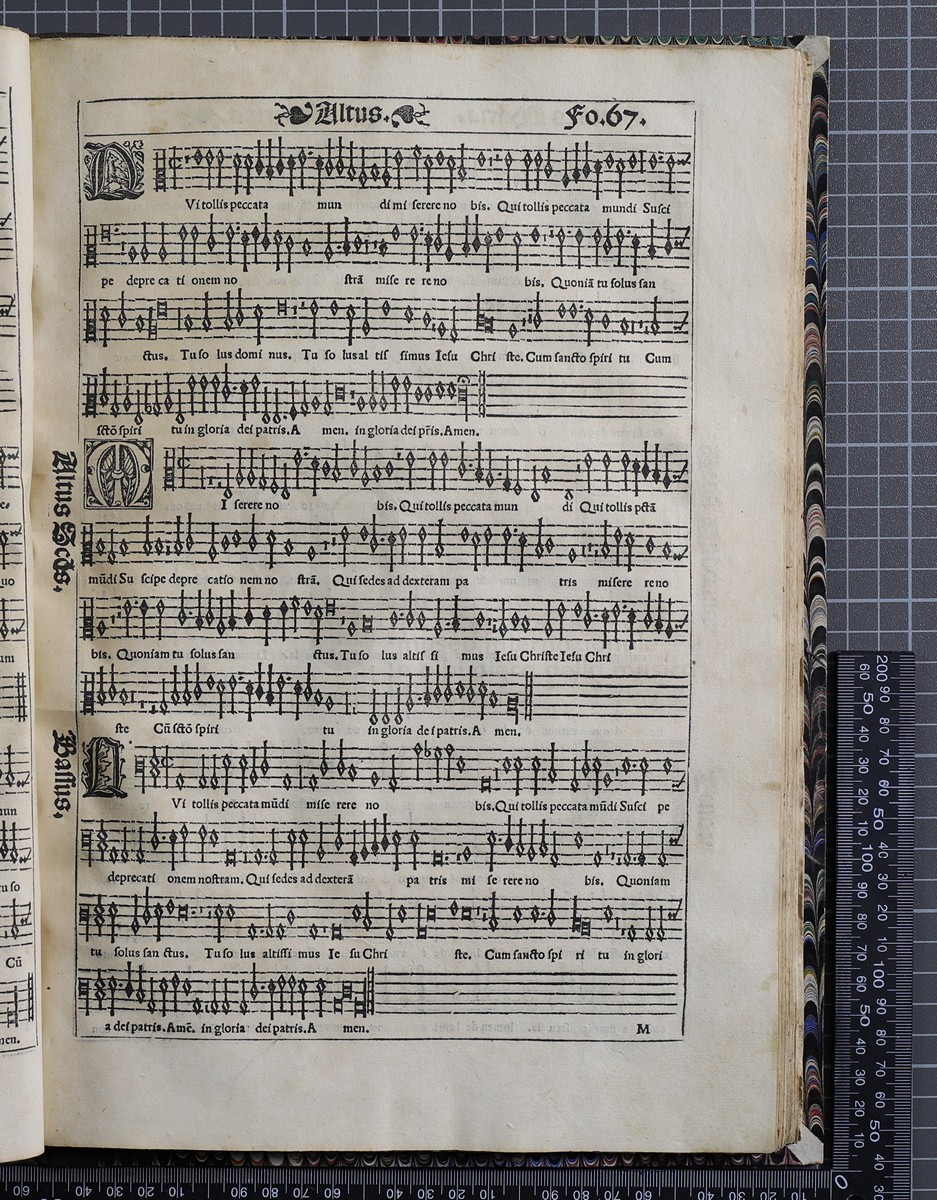 Altus. Fo.67.
QVi tollis peccata mun di mi serere no bis. Qui tollis peccata mundi Susci
pe depre ca ti onem no strã mise re re no bis. Quoniã tu solus san
ctus. Tu so lus domi nus. Tu so lus al tis simus Iesu Chri ste. Cum sancto spiri tu Cum
sctõ spiri tu in gloria dei patris. A men. in gloria dei pr̃is. Amen.
Altus Scds.
MI serere no bis. Qui tollis peccata mun di Qui tollis pctã
mũdi Su scipe depre catio nem no strã. Qui sedes ad dexteram pa tris misere re no
bis. Quoniam tu solus san ctus. Tu so lus altis si mus Iesu Christe Iesu Chri
ste Cũ sctõ spiri tu in gloria dei patris. A men.
Bassus.
QVi tollis peccata mũdi mise rere no bis. Qui tollis peccata mũdi Susci pe
deprecati onem nostram. Qui sedes ad dexterã pa tris mi se rere no bis. Quoniam
tu solus san ctus. Tu so lus altissi mus Ie su Chri ste. Cum sancto spi ri tu in glori
a dei patris. Amẽ. in gloria dei patris. A men. M